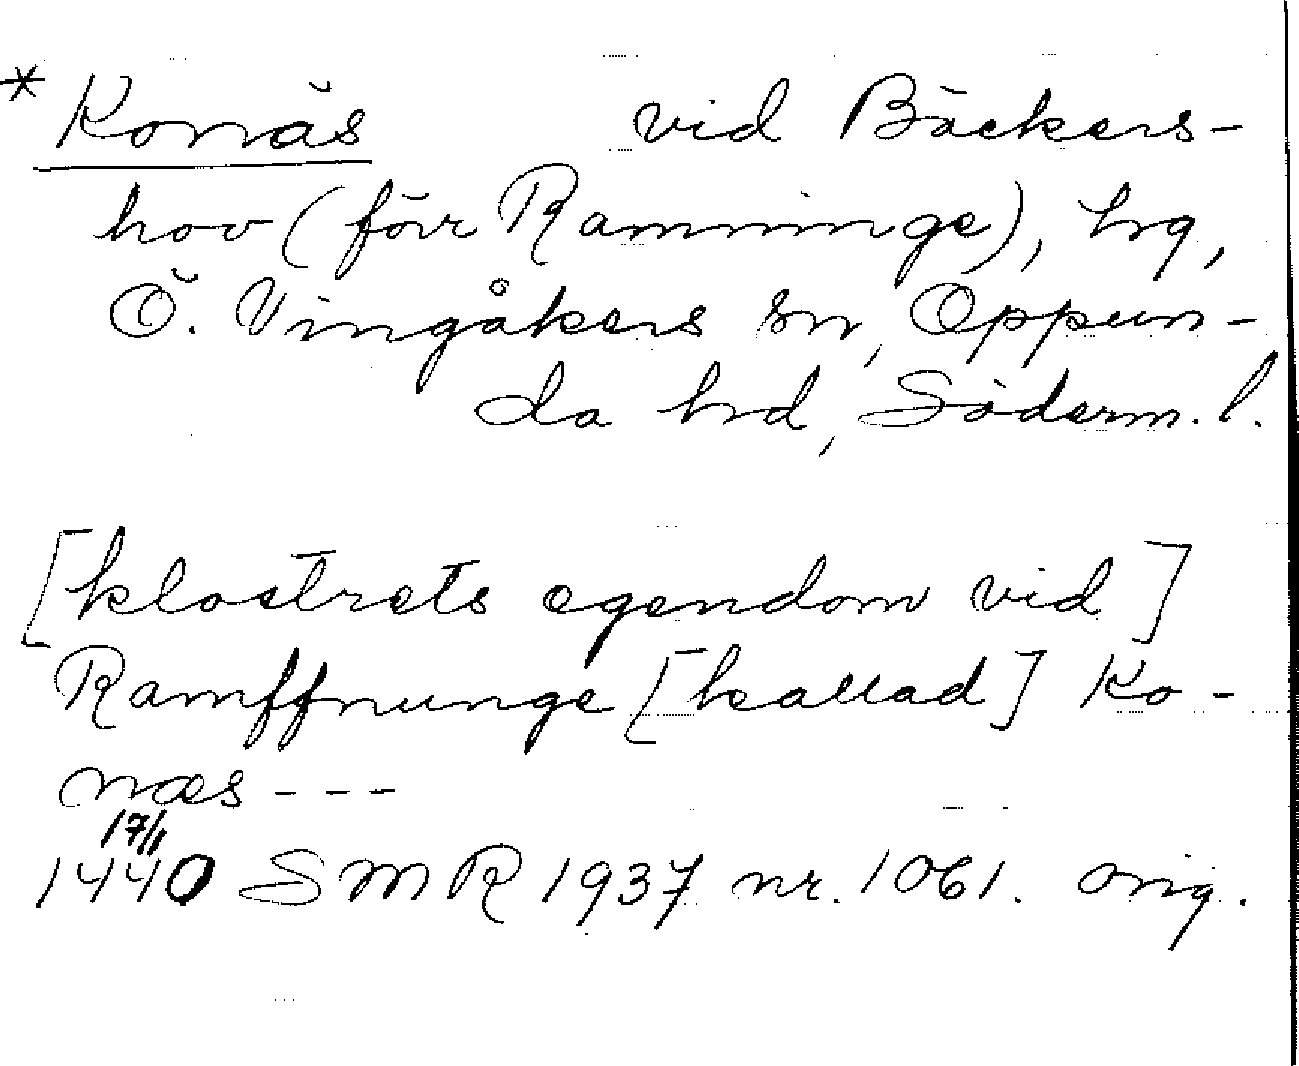 * Konäs vid Bäckers-
hov (förr Ramninge), hrg,
Ö. Vingåkers sn, Oppun-
da hrd, Söderm. l.
[klostrets egendom vid]
Ramffnunge [kallad] Ko-
næs ---
17/1
1440 SMR 1937 nr. 1061. orig.